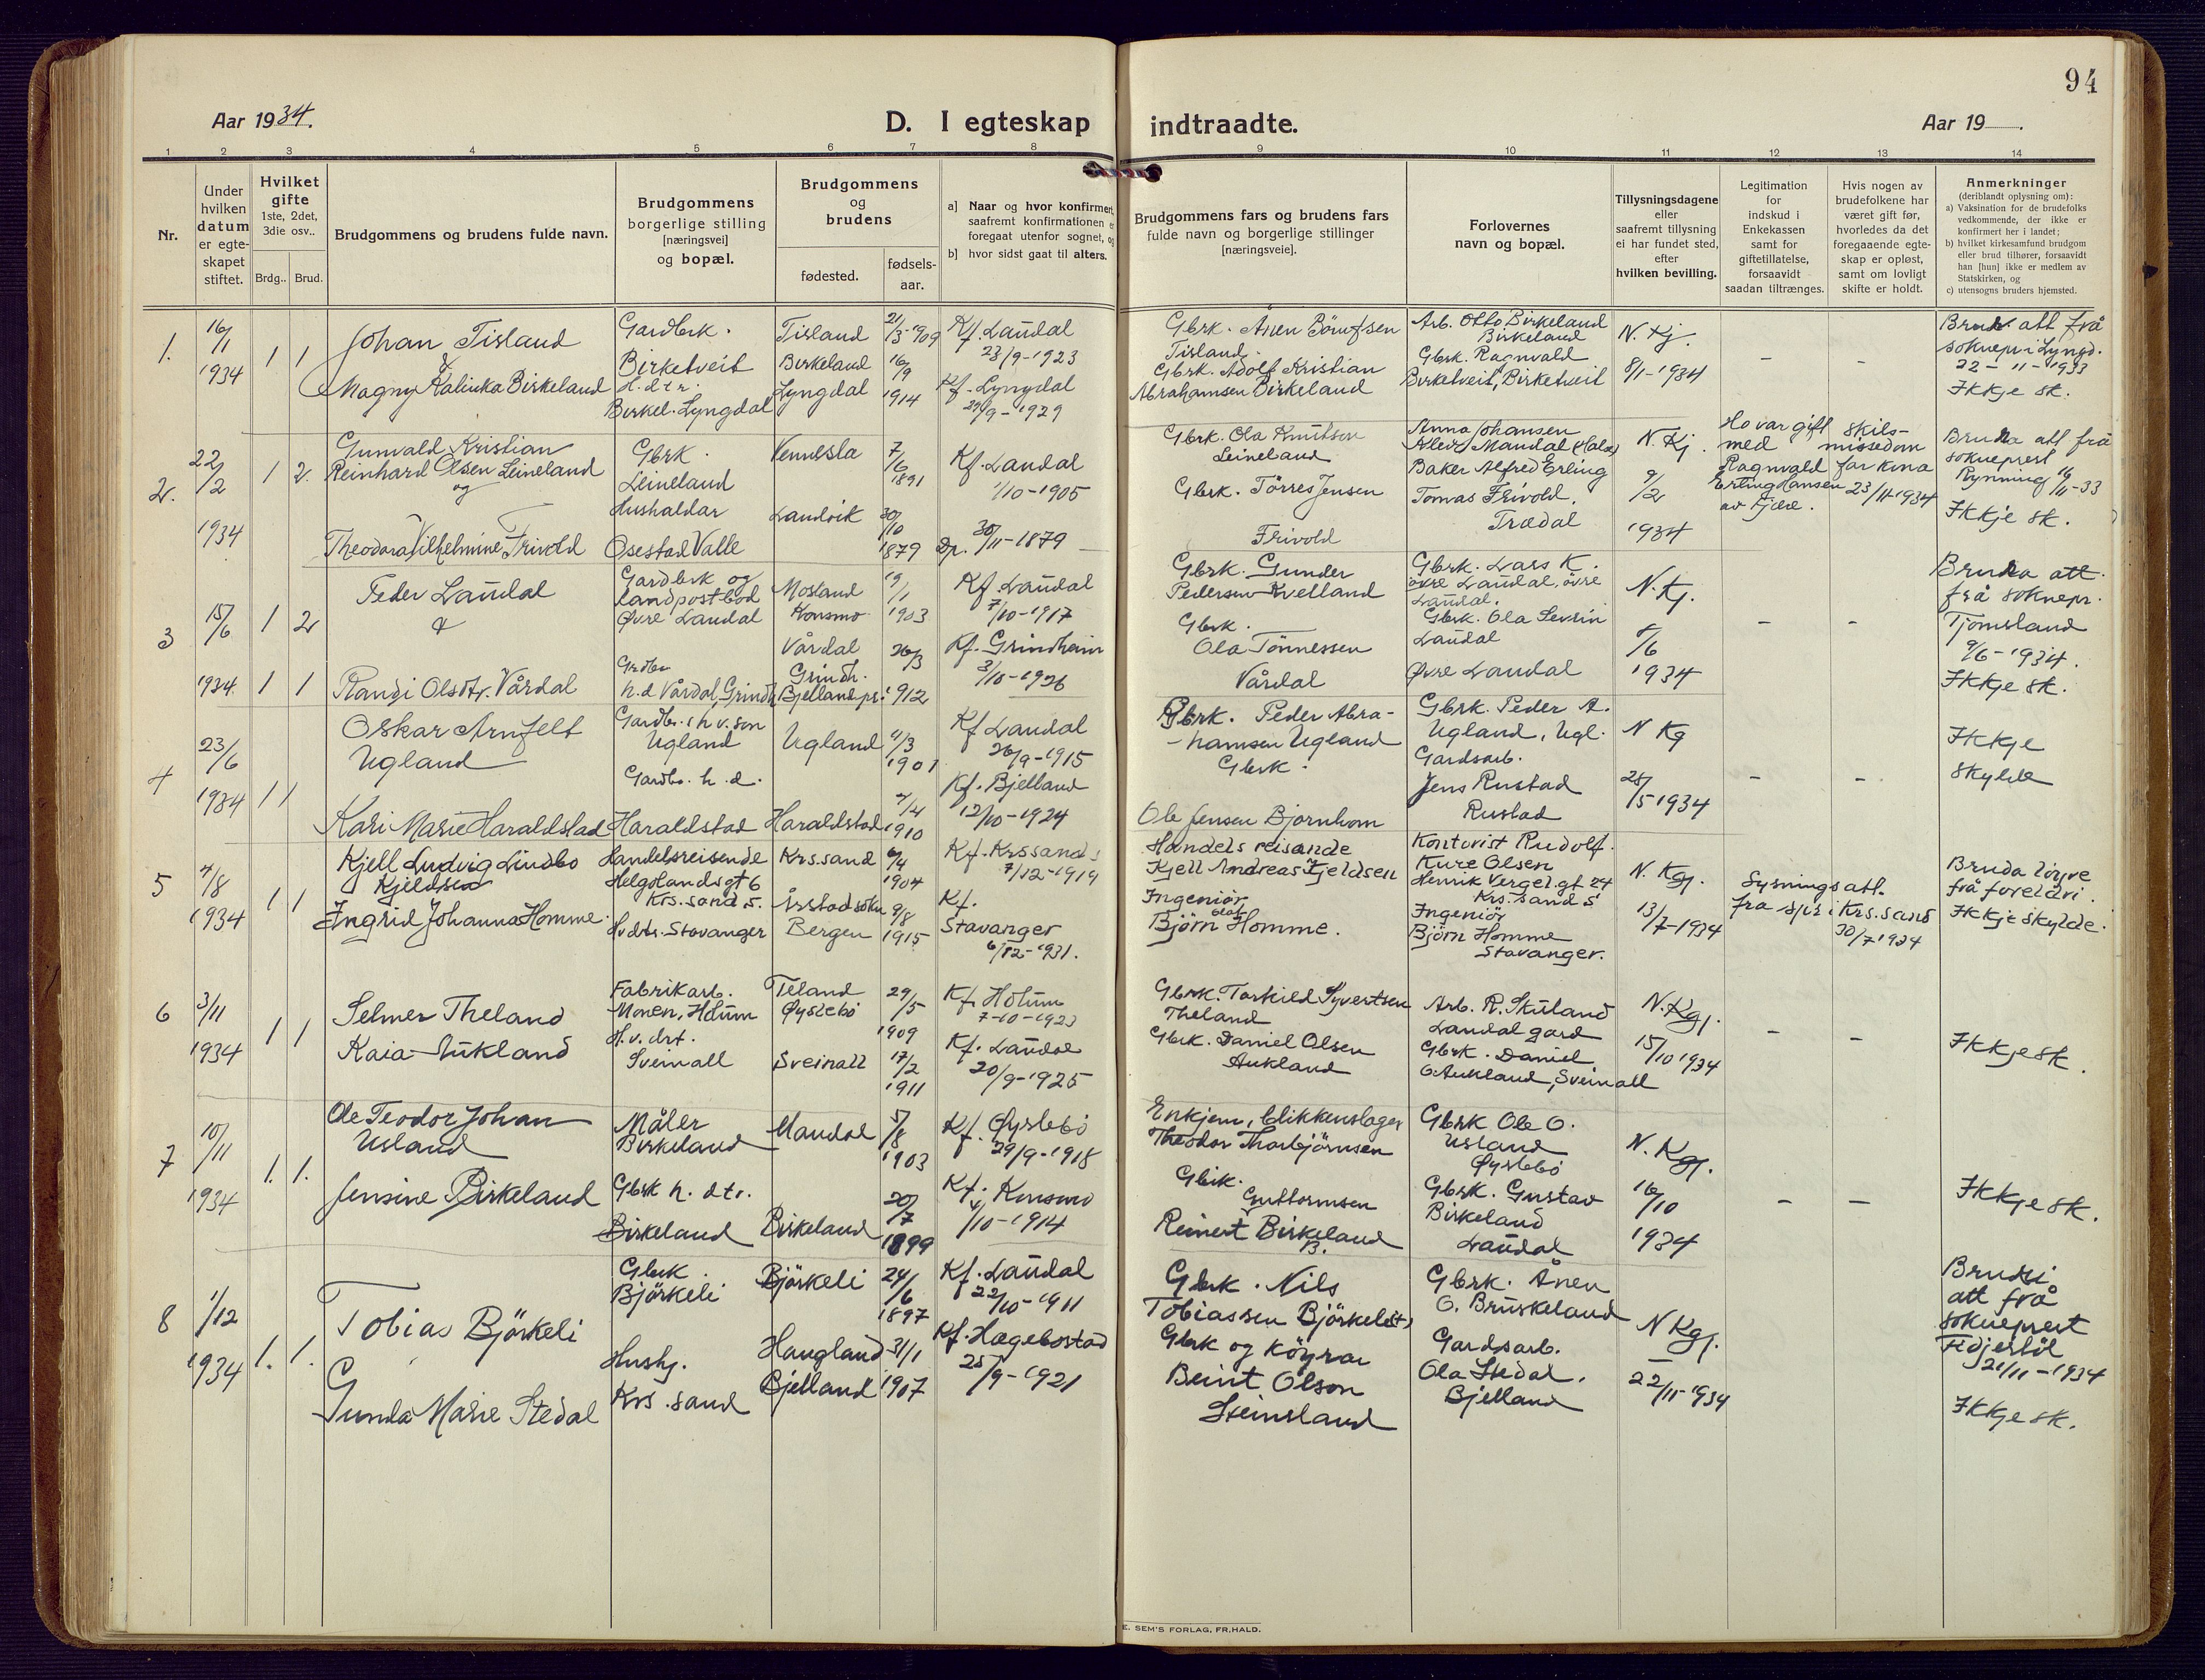 94
Aar 1934.
D. I egteskap indtraadte.
Aar 19 .
1 2 3 4 5 6 7 8 9 10 11 12 13 14
Nr.
Under
hvilken
datum
er egte-
skapet
stiftet.
Hvilket
gifte
1ste, 2det,
3die osv..
Brdg.. Brud.
Brudgommens og brudens fulde navn.
Brudgommens
borgerlige stilling
[næringsvei]
og bopæl.
Brudgommens
og
brudens
fødested.
fødsels-
aar.
a] Naar og hvor konfirmert,
saafremt konfirmationen er
foregaat utenfor sognet, og
b] hvor sidst gaat til alters.
Brudgommens fars og brudens fars
fulde navn og borgerlige stillinger
[næringsveie].
Forlovernes
navn og bopæl.
Tillysningsdagene
eller
saafremt tillysning
ei har fundet sted,
efter
hvilken bevilling.
Legitimation
for
indskud i
Enkekassen
samt for
giftetillatelse,
forsaavidt
saadan tiltrænges.
Hvis nogen av
brudefolkene har
været gift før,
hvorledes da det
foregaaende egte-
skap er opløst,
samt om lovligt
skifte er holdt.
Anmerkninger
(deriblandt oplysning om):
a) Vaksination for de brudefolks
vedkommende, der ikke er
konfirmert her i landet;
b) hvilket kirkesamfund brudgom
eller brud tilhører, forsaavidt
han [hun] ikke er medlem av
Statskirken, og
c) utensogns bruders hjemsted.
1.
16/1
1934
1 1
Johan Tisland
&
Magny Kalinka Birkeland
Gardbrk.
Birketveit
H.dtr.
Birkel. Lyngdal
Tisland
Birkeland
Lyngdal
21/3-1909
16/9
1914
Kf. Laudal
23/9-1923
Kf. Lyngdal
29/9-1929
Gbrk. Ånen
Tisland
Gbrk. Adolf Kristian
Abrahamsen Birkeland
Arb. Otto Birkeland
Birkeland
Gbrk. Ragnvald
Birketveit, Birketveit
N. Kj.
8/1-1934
-
-
Brud. att frå
soknepr i Lyngd.
22-11-1933
Ikkje sk.
2.
22/2
1934
1 2.
Gunvald Kristian
Reinhard Olsen Leineland
og
Theodora Vilhelmine Frivold
Gbrk.
Leineland
Hushaldar
Osestad Valle
Vennesla
Landvik
7/6
1891
30/10
1879
Kf. Laudal
1/10-1905
Dp. 30/11-1879
Gbrk. Ola Knutson
Leineland
Gbrk. Törres Jensen
Frivold
Anna Johansen
Kleven Mandal (Halse)
Baker Alfred Erling
Tomas Frivold.
Trædal
N. Kj.
9/2
1934
Ho var gift
med
Ragnvald
Erling Hansen
av Fjære.
skils-
missedom
for kona
23/11-1934
Bruda att frå
sokneprest
Rynning 16/11-33
Ikkje sk.
3
15/6
1934.
1 2
1 1
Peder Laudal
&
Randi Olsdtr. Vårdal
Gardbrk og
landpostbod
Øvre Laudal
Gardbr.
h.d Vårdal, Grindh.
Mosland
Konsmo
Vårdal
Grindh.
Bjelland pr.
19/1
1903
26/3
1912
Kf. Laudal
7/10-1917
Kf. Grindheim
3/10-1926
Gbrk. Gunder
Pedersen Kvelland
Gbrk.
Ola Tönnessen
Vårdal
Gbrk. Lars K.
övre Laudal, övre
Laudal.
Gbrk. Ola Sevrin
Laudal
Øvre Laudal
N. Kj.
5/6
1934
-
-
Bruda att
frå soknepr.
Tjomsland
9/6-1934.
Ikkje sk.
4
23/6
1934
1 1
Oskar Arnfelt
Ugland
Kari Marie Haraldstad
Gardbr. h v. son
Ugland
Gardbr. h. d.
Haraldstad
Ugland
Haraldstad
11/3
1901
7/4
1910
Kf Laudal
26/9-1915
Kf. Bjelland
12/10-1924
Gbrk. Peder Abra-
-hamsen Ugland
Gbrk.
Ole Jensen Bjørnhom
Gbrk. Peder A.
Ugland, Ugl.
Gardsarb.
Jens Rustad
Rustad
N Kg
28/5 1934
-
-
Ikkje
skylde
5
7/8
1934
1 1
Kjell Ludvig Lindbo
Kjeldsen
Ingrid Johanna Homme.
Handelsreisende
Helgolandsgt 6
Krs.sand S.
H.v.dtr. Stavanger
Krs.sand
Årstad sokn
Bergen
6/4
1904
9/8
1915
Kf. Krssand S
7/12-1919
Kf.
Stavanger
6/12-1931.
Handelsreisande
Kjell Andreas Kjeldsen
Ingeniör
Olaf
Björn Homme.
Kontorist Rudolf
Kure Olsen
Henrik Vergel.gt 24
Krs. sand S
Ingeniör
Björn Homme
Stavanger.
N. Kgj.
13/7-1934
Lysnings att.
fra spr i Krs.sand
30/7 1934
Bruda löyve
frå foreldri.
Ikkje skylde.
6
3/11
1934
1 1
Selmer Theland
Kaia Aukland
Fabrikarb.
Monen, Holum
H.v. drt.
Sveinall
Teland
Øyslebö
Sveinall
29/5
1909
17/2
1911
Kf. Holum
7-10-1923
Kf. Laudal
20/9-1925
Gbrk. Torkild Syvertsen
Theland
Gbrk. Daniel Olsen
Aukland
Arb. R. Skuland
Laudal gard
Gbrk. Daniel
O. Aukland, Sveinall
N. Kgj.
15/10 1934
-
-
Ikkje sk.
7
10/11
1934
1. 1.
Ole Teodor Johan
Usland
Jensine Birkeland
Måler
Birkeland
Gbrk h. dtr.
Birkeland
Mandal
Birkeland
5/8
1903
20/7
1899
Kf. Øyslebö
29/9-1918
Kf. Konsmo
4/10-1914
Enkjem, blikkenslager
Theodor Thorbjörnsen
Gbrk.
Guttormsen
Reinert Birkeland
B.
Gbrk Ole O.
Usland
Øyslebö
Gbrk. Gustav
Birkeland
Laudal
N. Kgj.
16/10
1934
-
-
Ikkje sk.
8
1/12
1934
1. 1.
Tobias Björkeli
Gunda Marie Stedal
Gbrk.
Björkeli
Hushj.
Krs.sand
Björkeli
Haugland
Bjelland
24/6
1897
31/1
1907
Kf. Laudal
22/10-1911
Kf. Hægebostad
25/9-1921
Gbrk. Nils
Tobiassen Björkeli
Gbrk og köyrar
Beint Olson
Steinsland
Gbrk. Ånen
O. Bruskeland
Gardsarb.
Ola Stedal.
Bjelland
N Kgj.
22/11-1934
Brudi
att frå
sokneprest
Fidjestöl
21/11-1934
Ikkje sk.
E. SEM'S FORLAG, FR.HALD.